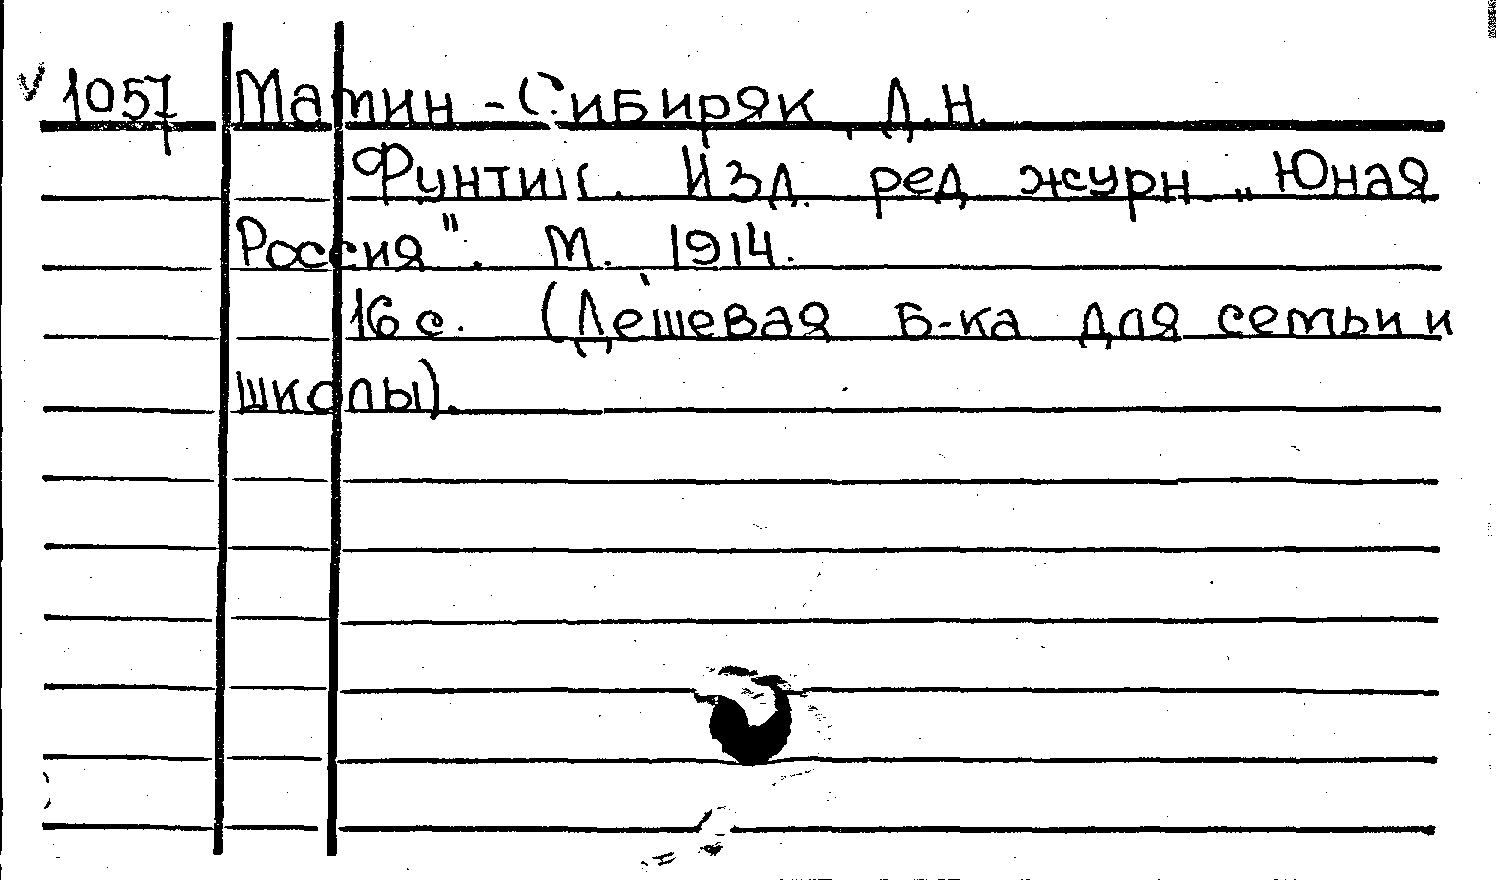 ✓ 1057 Матин-Сибиряк, Д.Н.
Фунтик. Изд. ред журн. „Юная
Россия". М. 1914.
16 с. (Дешевая Б-ка для семьи и
школы).